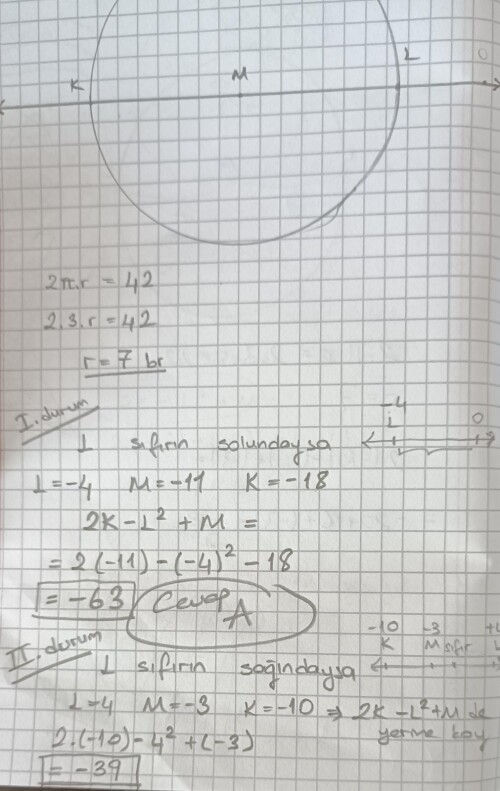 K M L 0
2π.r = 42
2.3.r = 42
r = 7 br
I. durum
-4
L 0
L sıfırın solundaysa
L = -4 M = -11 K = -18
2K - L² + M =
= 2(-11) - (-4)² - 18
= -63 Cevap A
II. durum
-10 -3 +4
K M sıfır L
L sıfırın sağındaysa
L=4 M = -3 K = -10 ⇒ 2K - L² + M de
yerine koy
2.(-10) - 4² + (-3)
= -39